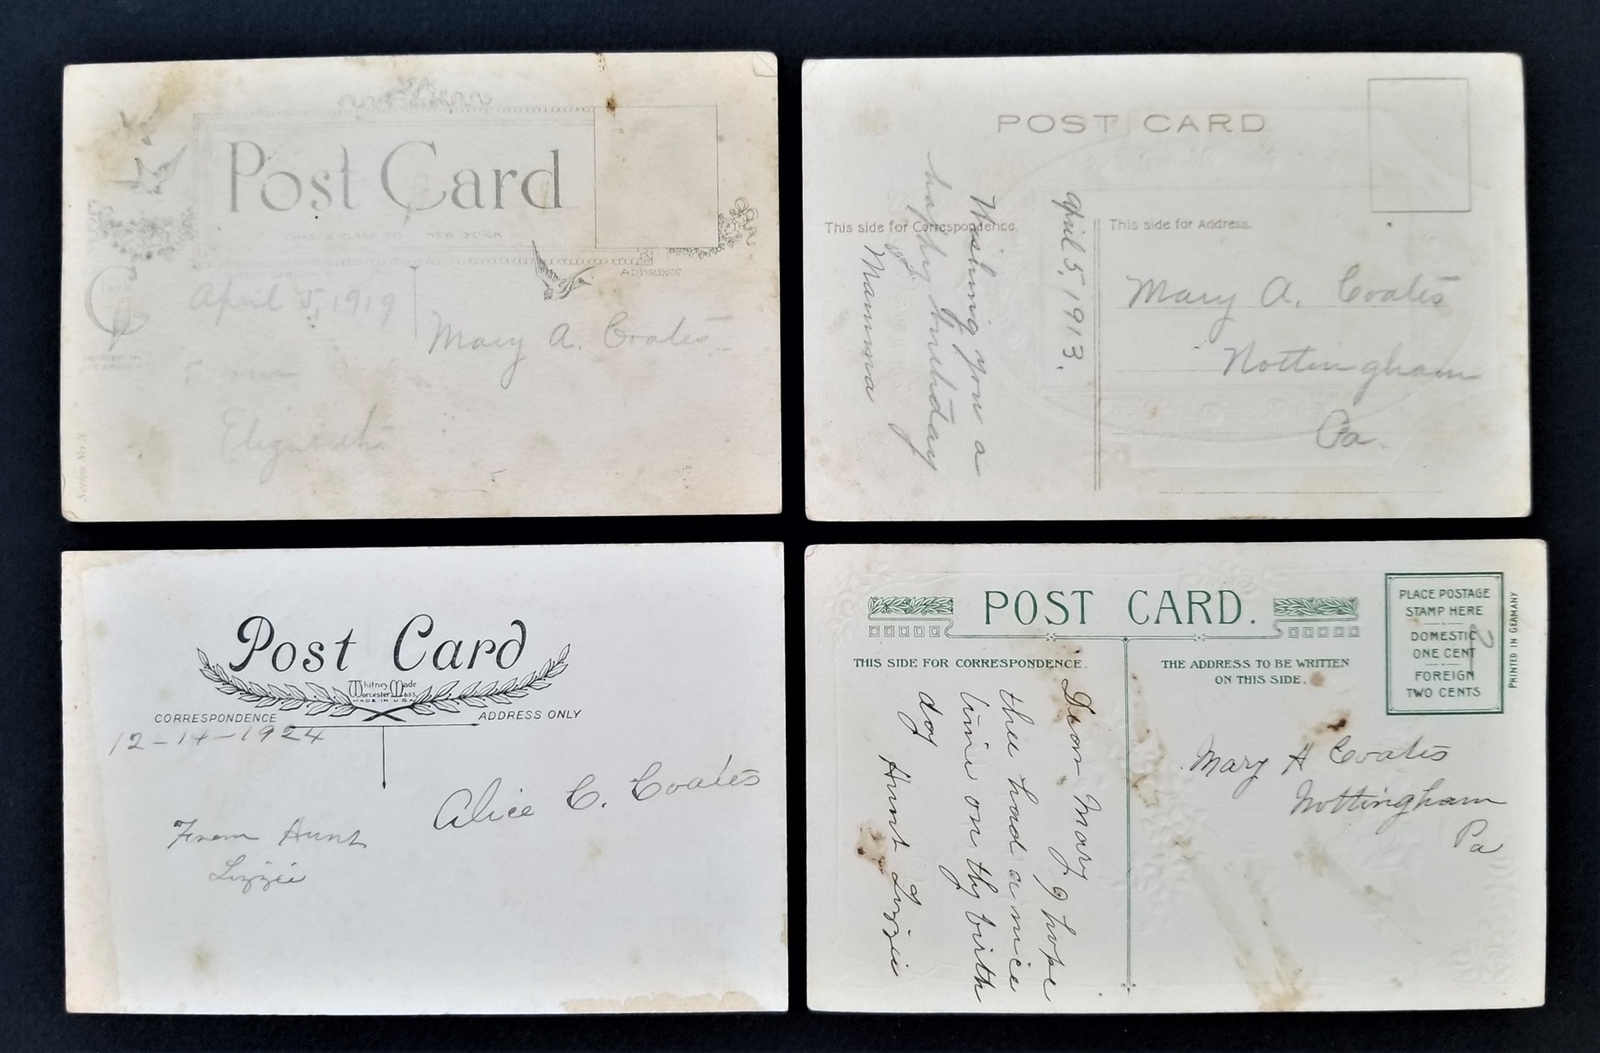 Post Card
CHAS. S. CLARK CO. NEW YORK
ADDRESS
April 5, 1919
Mary A. Coates
Elizabeth
Series No. 3
POST CARD
This side for Correspondence.
This side for Address.
April 5, 1913.
Wishing you a
happy birthday
Mamma
Mary A. Coates
Nottingham
Pa.
Post Card
Whitney Made
Worcester Mass
MADE IN U.S.A.
CORRESPONDENCE
ADDRESS ONLY
12-14-1924
Alice C. Coates
From Aunt
Lizzie
POST CARD.
THIS SIDE FOR CORRESPONDENCE.
THE ADDRESS TO BE WRITTEN
ON THIS SIDE.
PLACE POSTAGE
STAMP HERE
DOMESTIC
ONE CENT
FOREIGN
TWO CENTS
PRINTED IN GERMANY
Dear Mary I hope
thee had a nice
time on thy birth
day
Aunt Lizzie
Mary A Coates
Nottingham
Pa